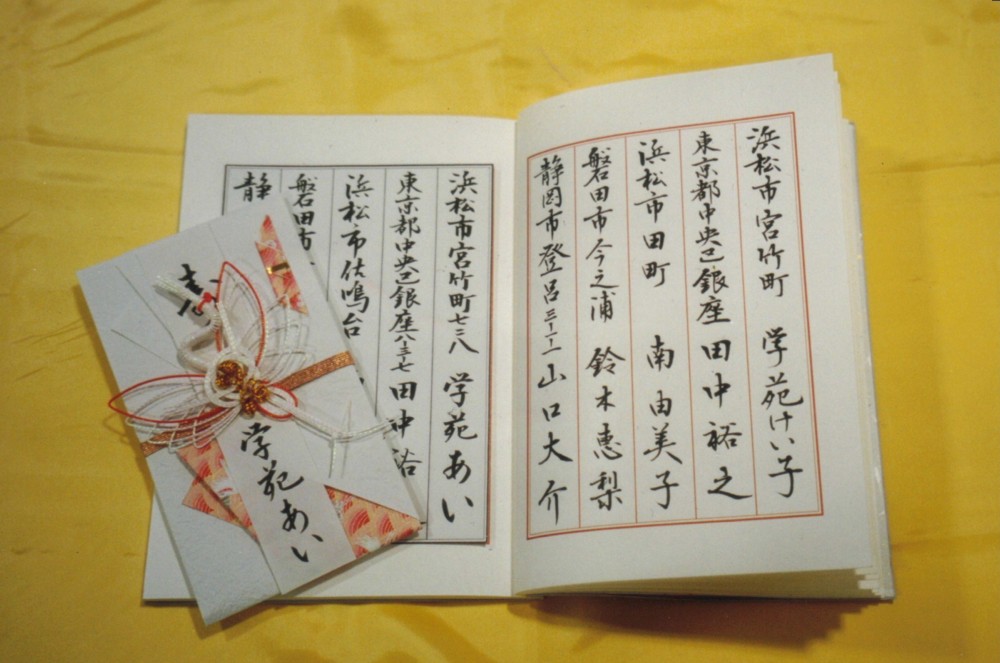 浜松市宮竹町 学苑けい子
東京都中央区銀座 田中裕之
浜松市田町 南由美子
磐田市今之浦 鈴木恵梨
静岡市登呂三ー一ー一 山口大介
浜松市宮竹町七三八 学苑あい
東京都中央区銀座八ー三ー七 田中裕
浜松市佐鳴台
磐田市
静
寿
学苑あい